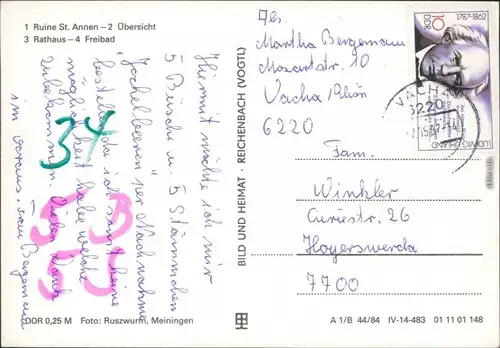 1 Ruine St. Annen – 2 Übersicht
3 Rathaus – 4 Freibad
Hiermit möchte ich mir
5 Büsche u. 5 Stämmchen
"Jochelbeeren" per Nachnahme
bestellen, da ich sonst keine
möglichkeit habe welche
zubekommen. Vielen Dank
im voraus, Frau Bergemann
4
3
DDR 0,25 M Foto: Ruszwurm, Meiningen
BILD UND HEIMAT · REICHENBACH (VOGTL)
Abs.
Martha Bergemann
Mozartstr. 10
Vacha/Rhön
6220
1787-1862
DDR
10
LUDWIG UHLAND
VACHA
6220
Fam.
Winkler
Curiestr. 26
Hoyerswerda
7700
A 1/B 44/84 IV-14-483 01 11 01 148